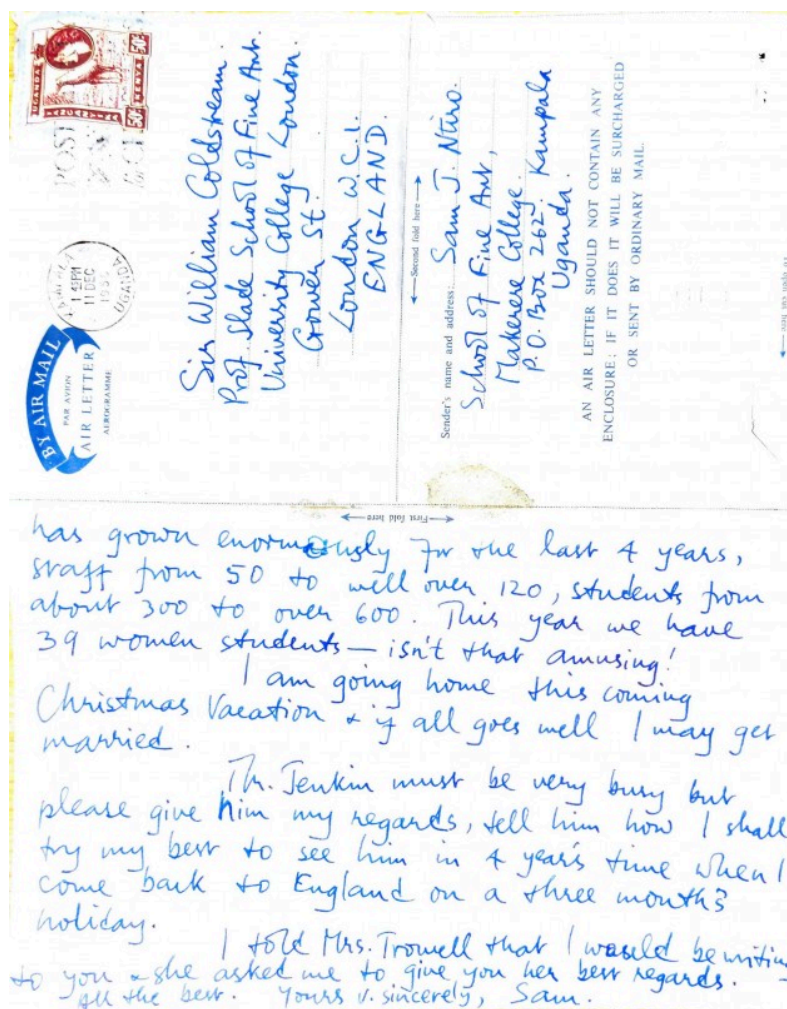 UGANDA
KENYA
TANGANYIKA
50c
50c
POST
1 45PM
11 DEC
UGANDA
BY AIR MAIL
PAR AVION
AIR LETTER
AEROGRAMME
Sir William Coldstream.
Prof. Slade School of Fine Art.
University College London.
Gower St.
London W.C.1.
ENGLAND.
Second fold here
Sender's name and address: Sam J. Ntiro.
School of Fine Art,
Makerere College.
P.O. Box 262. Kampala
Uganda.
AN AIR LETTER SHOULD NOT CONTAIN ANY
ENCLOSURE; IF IT DOES IT WILL BE SURCHARGED
OR SENT BY ORDINARY MAIL.
To open cut here
First fold here
has grown enormously for the last 4 years,
staff from 50 to well over 120, students from
about 300 to over 600. This year we have
39 women students — isn't that amusing!
I am going home this coming
Christmas Vacation & if all goes well I may get
married.
Mr. Jenkin must be very busy but
please give him my regards, tell him how I shall
try my best to see him in 4 year's time when I
come back to England on a three months'
holiday.
I told Mrs. Trowell that I would be writing
to you & she asked me to give you her best regards.
All the best. Yours v. sincerely, Sam.